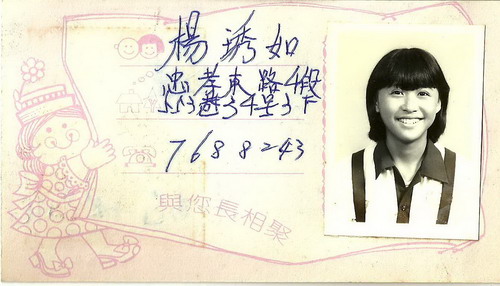 楊琇如
忠孝東路4段
553巷34号3F
7688243
與您長相聚